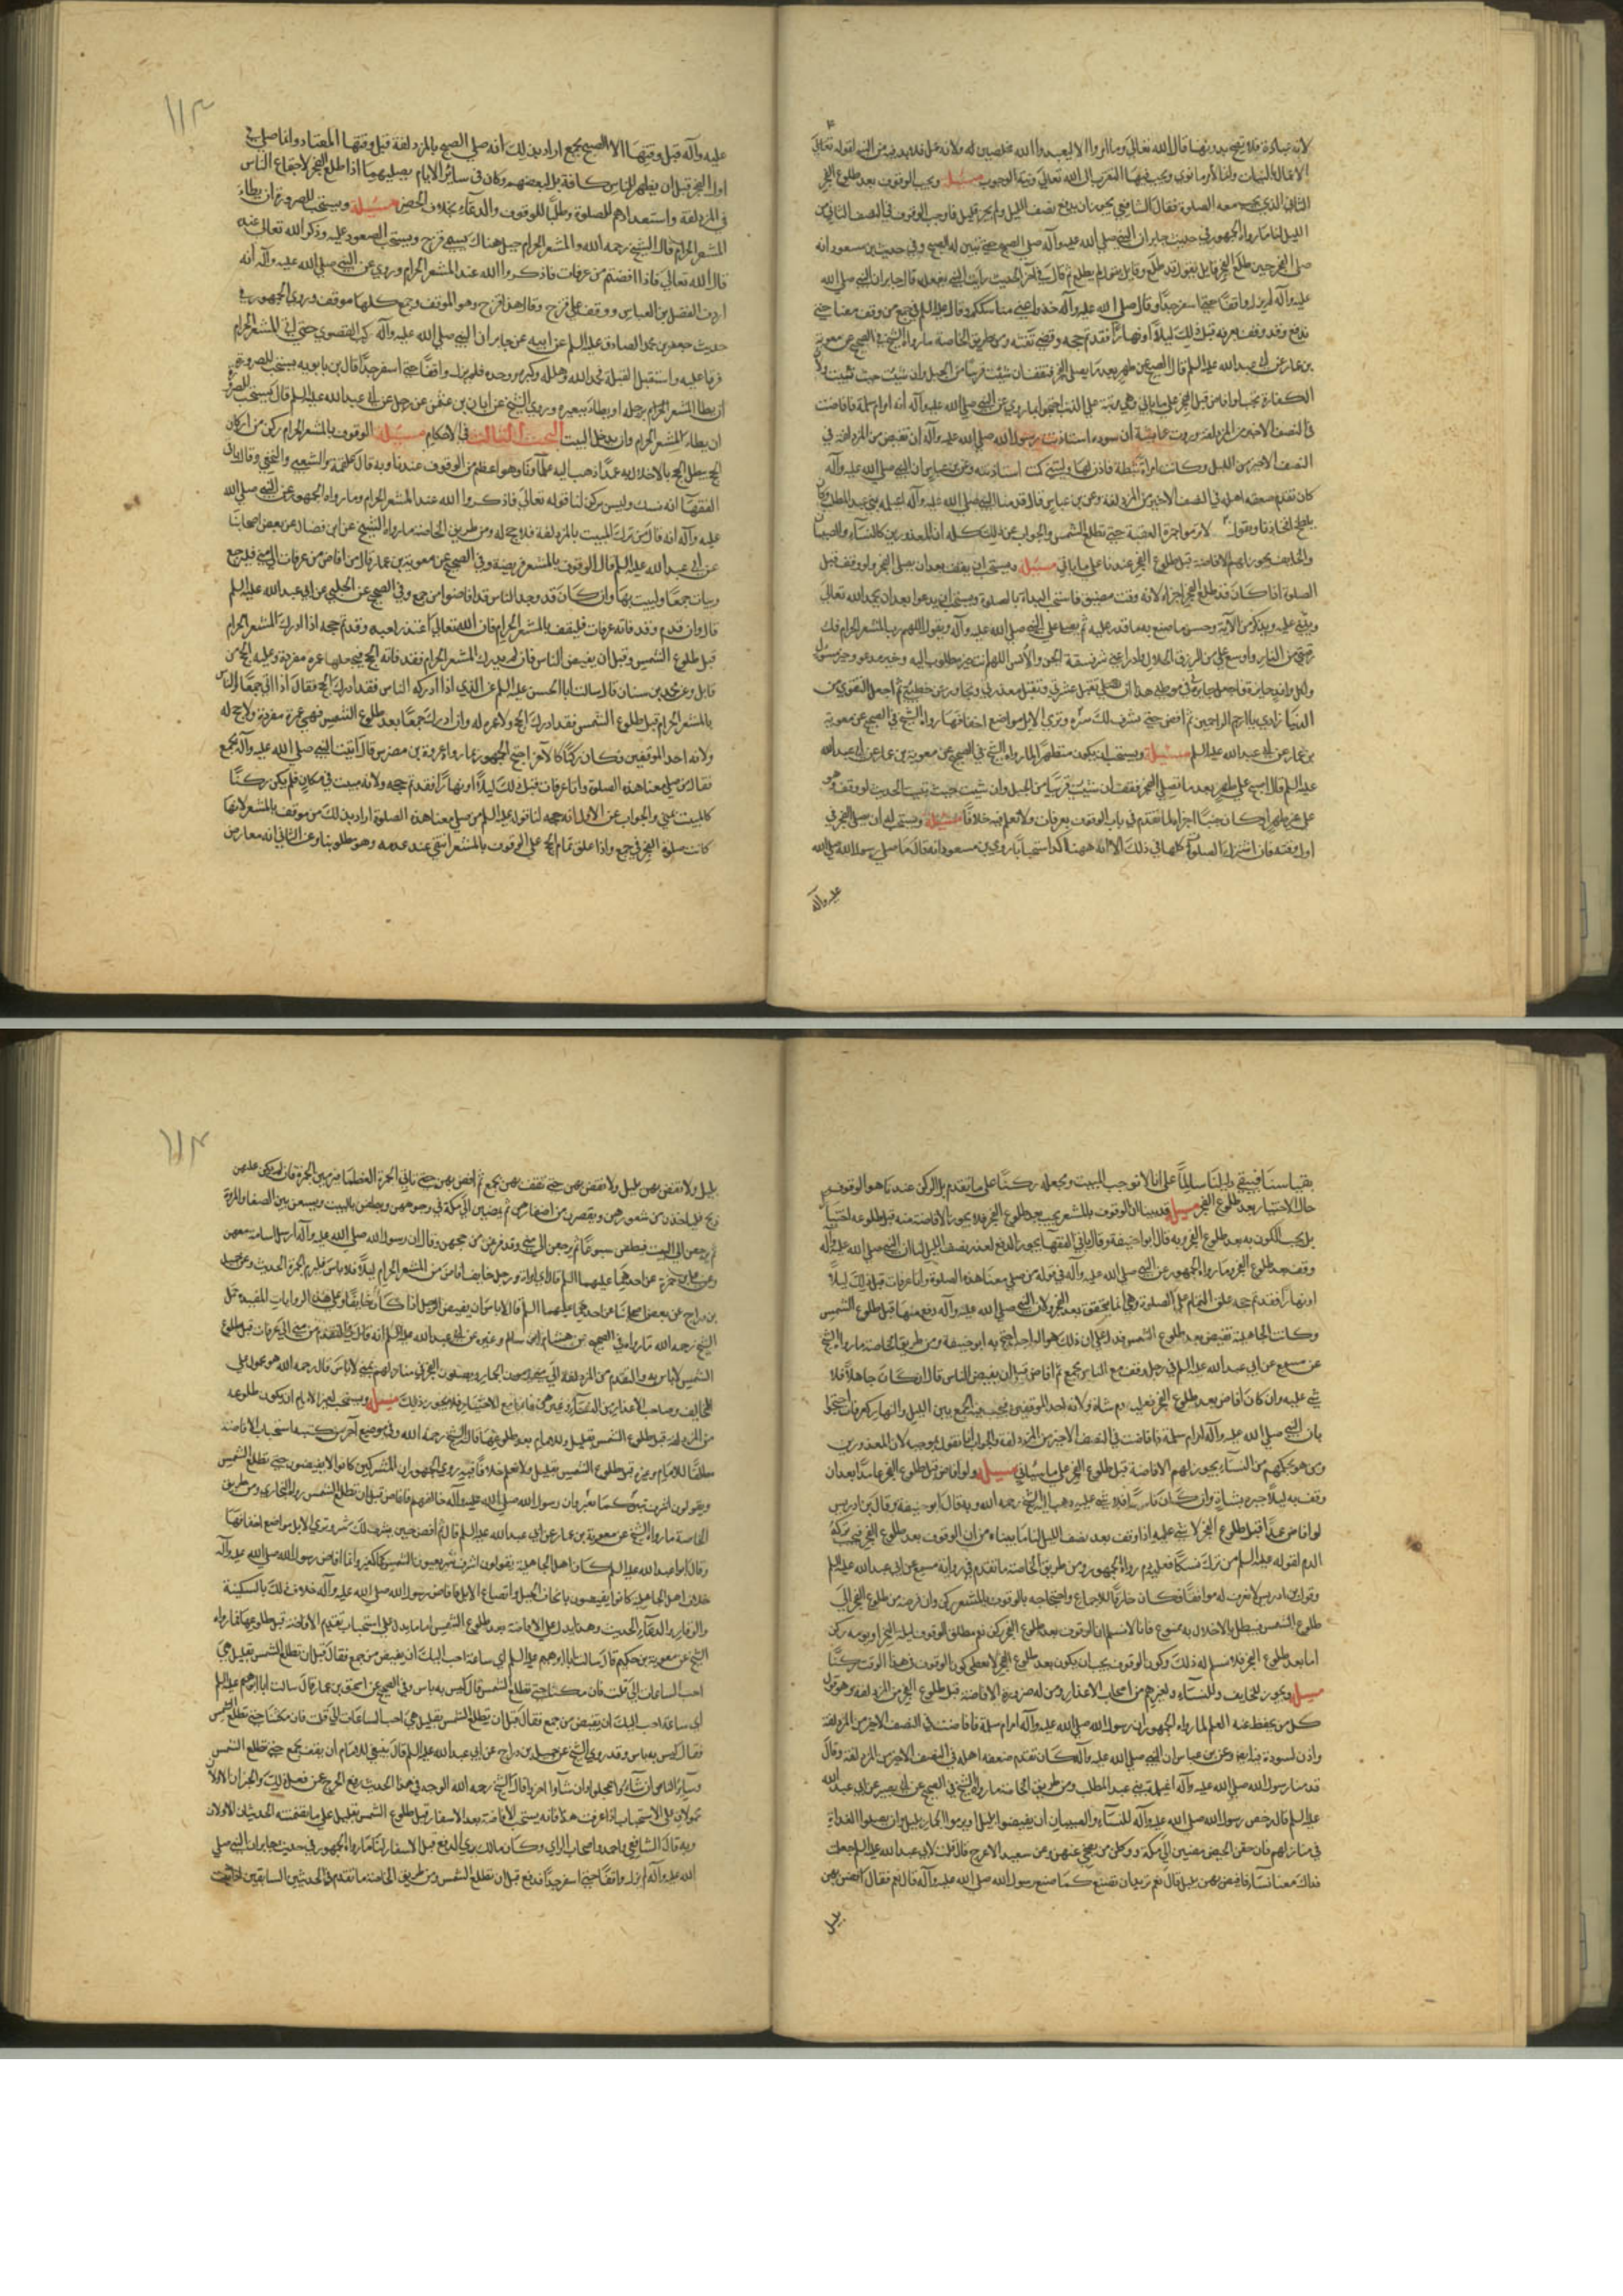 لانه عبادة فلا تصح بدونها قال الله تعالى وما امروا الا ليعبدوا الله مخلصين له ولانه عمل فلا بد فيه من النية لقوله تعالى
الاعمال بالنيات وانما لامرء ما نوى ويجب فيها التقرب الى الله تعالى ونية الوجوب مسئلة ويجب الوقوف بعد طلوع الفجر
الثاني الذي يجب معه الصلوة فقال الشافعي يجوز ان يدفع نصف الليل ولو بجزء قليل فاوجب الوقوف في النصف الثاني من
الليل لنا ما رواه الجمهور في حديث جابر ان النبي صلى الله عليه وآله صلى الصبح حتى تبين له الصبح وفي حديث بن مسعود انه
صلى الفجر حين طلع الفجر قايل يقول قد طلع وقايل يقول لم يطلع ثم قال في آخر الحديث رايت النبي يفعله قال جابر ان النبي صلى الله
عليه وآله لم يزل واقفا حتى اسفر جدا وقال صلى الله عليه وآله خذوا عني مناسككم وقال عليه السلم من وقف معنا حتى
ندفع وقد وقف بعرفة قبل ذلك ليلا او نهارا فقد تم حجه وقضى تفثه ومن طريق الخاصة ما رواه الشيخ في الصحيح عن معوية
بن عمار عن ابي عبد الله عليه السلم قال اصبح على طهر بعد ما يصلي الفجر فقف ان شئت قريبا من الجبل وان شئت حيث تبيت
الكفارة تجب لو افاض قبل الفجر على ما ياتي وهي مرتبة على الذنب احتجوا بما روي عن النبي صلى الله عليه وآله انه امر ام سلمة فافاضت
في النصف الاخير من المزدلفة وروت عايشة ان سودة استاذنت رسول الله صلى الله عليه وآله ان تفيض من المزدلفة في
النصف الاخير من الليل وكانت امراة ثبطة فاذن لها وليتني كنت استاذنته وعن بن عباس ان النبي صلى الله عليه وآله
كان تقدم ضعفة اهله في النصف الاخير من المزدلفة وعن بن عباس قال قدمنا النبي صلى الله عليه وآله اغيلمة بني عبد المطلب وكان
يلطح افخاذنا ويقول لا ترموا جمرة العقبة حتى تطلع الشمس والجواب عن ذلك كله ان المعذورين كالنساء والصبيان
والخايف يجوز لهم الافاضة قبل طلوع الفجر عندنا على ما ياتي مسئلة ويستحب ان يقف بعد ان يصلي الفجر ولو وقف قبل
الصلوة اذا كان قد طلع الفجر اجزاه لانه وقت مضيق فاستحب البداة بالصلوة ويستحب ان يدعوا بعد ان يحمد الله تعالى
ويثني عليه ويذكر من آلائه وحسن ما صنع به ما قدر عليه ثم يصلي على النبي صلى الله عليه وآله ويقول اللهم رب المشعر الحرام فك
رقبتي من النار واوسع علي من الرزق الحلال وادرا عني شر فسقة الجن والانس اللهم انت خير مطلوب اليه وخير مدعو وخير مسؤل
ولكل وافد جايزة فاجعل جايزتي في موطني هذا ان تقيلني عثرتي وتقبل معذرتي وتجاوز عن خطيئتي ثم اجعل التقوى من
الدنيا زادي يا ارحم الراحمين ثم افض حتى يشرف لك ثبير وترى الابل مواضع اخفافها رواه الشيخ في الصحيح عن معوية
بن عمار عن ابي عبد الله عليه السلم مسئلة ويستحب ان يكون متطهرا لما رواه الشيخ في الصحيح عن معوية بن عمار عن ابي عبد الله
عليه السلم قال اصبح على طهر بعد ما تصلي الفجر فقف ان شئت قريبا من الجبل وان شئت حيث تبيت الحديث لو وقف وهو
على غير طهر او كان جنبا اجزاه لما تقدم في باب الوقوف بعرفات ولا نعلم فيه خلافا مسئلة ويستحب له ان يصلي الفجر في
اول وقته فان اشتراك الصلوة كلها في ذلك الا انه ههنا اكد استحبابا روى بن مسعود انه قال ما صلى رسول الله صلى الله
عليه وآله
١١٣
عليه وآله قبل وقتها الا الصبح بجمع اراد بذلك انه صلى الصبح بالمزدلفة قبل وقتها المعتاد وانما صلى في
اول الفجر قبل ان يظهر للناس كافة بل لبعضهم وكان في ساير الايام يصليها اذا طلع الفجر لاجتماع الناس
في المزدلفة واستعدادهم للصلوة وطلبا للوقوف والدعاء بخلاف الحضر مسئلة ويستحب للصرورة ان يطاء
المشعر الحرام قال الشيخ رحمه الله والمشعر الحرام جبل هناك يسمى قزح ويستحب الصعود عليه وذكر الله تعالى عنده
قال الله تعالى فاذا افضتم من عرفات فاذكروا الله عند المشعر الحرام وروي عن النبي صلى الله عليه وآله انه
اردف الفضل بن العباس ووقف على قزح وقال هذا قزح وهو الموقف وجمع كلها موقف وروى الجمهور في
حديث جعفر بن محمد الصادق عليه السلم عن ابيه عن جابر ان النبي صلى الله عليه وآله ركب القصوى حتى اتى المشعر الحرام
فرقا عليه واستقبل القبلة فحمد الله وهلله وكبره ووحده فلم يزل واقفا حتى اسفر جدا قال بن بابويه يستحب للصرورة
ان يطا المشعر الحرام برجله او يطاءه ببعيره وروى الشيخ عن ابان بن عثمن عن رجل عن ابي عبد الله عليه السلم قال يستحب للصرورة
ان يطاء المشعر الحرام وان يدخل البيت البحث الثالث في الاحكام مسئلة الوقوف بالمشعر الحرام ركن من اركان
الحج يبطل الحج بالاخلال به عمدا ذهب اليه علماؤنا وهو اعظم من الوقوف عندنا وبه قال علقمة والشعبي والنخعي وقال باقي
الفقهاء انه نسك وليس بركن لنا قوله تعالى فاذكروا الله عند المشعر الحرام وما رواه الجمهور عن النبي صلى الله
عليه وآله انه قال من ترك المبيت بالمزدلفة فلا حج له ومن طريق الخاصة ما رواه الشيخ عن ابن فضال عن بعض اصحابنا
عن ابي عبد الله عليه السلم قال الوقوف بالمشعر فريضة وفي الصحيح عن معوية بن عمار قال من افاض من عرفات الى منى فليرجع
وليات جمعا وليبت بها وان كان قد وجد الناس قد افاضوا من جمع وفي الصحيح عن الحلبي عن ابي عبد الله عليه السلم
قال وان قدم وقد فاته عرفات فليقف بالمشعر الحرام فان الله تعالى اعذر لعبده وقد تم حجه اذا ادرك المشعر الحرام
قبل طلوع الشمس وقبل ان يفيض الناس فان لم يدرك المشعر الحرام فقد فاته الحج فيجعلها عمرة مفردة وعليه الحج من
قابل وعن محمد بن سنان قال سالت ابا الحسن عليه السلم عن الذي اذا ادركه الناس فقد ادرك الحج فقال اذا اتى جمعا والناس
بالمشعر الحرام قبل طلوع الشمس فقد ادرك الحج ولا عمرة له وان ادرك جمعا بعد طلوع الشمس فهي عمرة مفردة ولا حج له
ولانه احد الموقفين فكان ركنا كالاخر احتج الجمهور بما رواه عروة بن مضرس قال اتيت النبي صلى الله عليه وآله بجمع
فقال من صلى معنا هذه الصلوة واتا عرفات قبل ذلك ليلا او نهارا فقد تم حجه ولانه مبيت في مكان فلم يكن ركنا
كالمبيت بمنى والجواب عن الاول انه حجة لنا قوله عليه السلم من صلى معنا هذه الصلوة اراد بذلك من موقف بالمشعر لانها
كانت صلوة الفجر في جمع واذا علق تمام الحج على الوقوف بالمشعر انتفى عند عدمه وهو مطلوبنا وعن الثاني انه معارض
بقياسنا فيبقى دليلنا سالما على انا لا نوجب المبيت ونجعله ركنا على ما تقدم بل الركن عندنا هو الوقوف
حال الاختيار بعد طلوع الفجر مسئلة قد بينا ان الوقوف بالمشعر يجب بعد طلوع الفجر فلا يجوز الافاضة منه قبل طلوعه اختيارا
بل يجب الكون به بعد طلوع الفجر وبه قال ابو حنيفة وقال باقي الفقهاء يجوز الدفع بعد نصف الليل لنا ان النبي صلى الله عليه وآله
وقف بعد طلوع الفجر وما رواه الجمهور عن النبي صلى الله عليه وآله في قوله من صلى معنا هذه الصلوة واتا عرفات قبل ذلك ليلا
او نهارا فقد تم حجه علق التمام على الصلوة وهي انما تتحقق بعد الفجر ولان النبي صلى الله عليه وآله دفع منها قبل طلوع الشمس
وكانت الجاهلية تفيض بعد طلوع الشمس فدل على ان ذلك هو الواجب احتج به ابو حنيفة ومن طريق الخاصة ما رواه الشيخ
عن مسمع عن ابي عبد الله عليه السلم في رجل وقف مع الناس بجمع ثم افاض قبل ان يفيض الناس قال ان كان جاهلا فلا
شي عليه وان كان افاض بعد طلوع الفجر فعليه دم شاة ولانه احد الموقفين فيجب فيه الجمع بين الليل والنهار كعرفات احتجوا
بان النبي صلى الله عليه وآله امر ام سلمة فافاضت في النصف الاخير من المزدلفة والجواب انا نقول بموجبه لان المعذورين
ومن هو بحكمهم من النساء يجوز لهم الافاضة قبل طلوع الفجر على ما سياتي مسئلة ولو افاض قبل طلوع الفجر عامدا بعد ان
وقف به ليلا جبره بشاة وان كان ناسيا فلا شي عليه ذهب اليه الشيخ رحمه الله وبه قال ابو حنيفة وقال بن ادريس
لو افاض عمدا قبل طلوع الفجر لا شي عليه اذا وقف بعد نصف الليل لنا ما بيناه من ان الوقوف بعد طلوع الفجر فيجب بتركه
الدم لقوله عليه السلم من ترك نسكا فعليه دم رواه الجمهور ومن طريق الخاصة ما تقدم في رواية مسمع عن ابي عبد الله عليه السلم
وقول بن ادريس لا نعرف له موافقا فكان خارقا للاجماع واحتجاجه بالوقوف بالمشعر ركن وان فرضه من طلوع الفجر الى
طلوع الشمس فيبطل بالاخلال به ممنوع فانا لا نسلم ان الوقوف بعد طلوع الفجر ركن نعم مطلق الوقوف ليلة النحر او يومه ركن
اما بعد طلوع الفجر فلا نسلم له ذلك وكون الوقوف يجب ان يكون بعد طلوع الفجر لا يعطي كون الوقوف في هذا الوقت ركنا
مسئلة ويجوز للخايف وللنساء ولغيرهم من اصحاب الاعذار ومن له ضرورة الافاضة قبل طلوع الفجر من المزدلفة وهو قول
كل من يحفظ عنه العلم لما رواه الجمهور ان رسول الله صلى الله عليه وآله امر ام سلمة فافاضت في النصف الاخير من المزدلفة
واذن لسودة فيه ايضا وعن بن عباس ان النبي صلى الله عليه وآله كان تقدم ضعفة اهله في النصف الاخير من المزدلفة وقال
قدمنا رسول الله صلى الله عليه وآله اغيلمة بني عبد المطلب ومن طريق الخاصة ما رواه الشيخ في الصحيح عن ابي بصير عن ابي عبد الله
عليه السلم قال رخص رسول الله صلى الله عليه وآله للنساء والصبيان ان يفيضوا بليل ويرموا الجمار بليل وان يصلوا الغداة
في منازلهم فان خفن الحيض مضين الى مكة ووكلن من يضحي عنهن وعن سعيد الاعرج قال قلت لابي عبد الله عليه السلم جعلت
فداك معنا نساء فافيض بهن بليل قال نعم تريد ان تصنع كما صنع رسول الله صلى الله عليه وآله قال نعم فقال افض بهن
بليل
١١٤
بليل ولا تفض بهن بليل ولا تفض بهن حتى تقف بهن بجمع ثم افض بهن حتى تاتي الجمرة العظمى فيرمين الجمرة فان لم يكن عليهن
ذبح فلياخذن من شعورهن ويقصرن من اظفارهن ثم يمضين الى مكة في وجوههن ويطفن بالبيت ويسعين بين الصفا والمروة
ثم يرجعن الى البيت فيطفن سبوعا ثم يرجعن الى منى وقد فرغن من حجهن وقال ان رسول الله صلى الله عليه وآله ارسل اسامة معهن
وعن علي بن حمزة عن احدهما عليهما السلم قال اي امراة ورجل خايف افاض من المشعر الحرام ليلا فلا باس فليرم الجمرة الحديث وعن جميل
بن دراج عن بعض اصحابنا عن احدهما عليهما السلم قال لا باس ان يفيض الرجل اذا كان خايفا وعلى هذه الروايات المقيدة حمل
الشيخ رحمه الله ما رواه في الصحيح عن هشام بن سالم وغيره عن ابي عبد الله عليه السلم انه قال في التقدم من منى الى عرفات قبل طلوع
الشمس لا باس به والتقدم من المزدلفة الى منى يرمون الجمار ويصلون الفجر في منازلهم بمنى لا باس قال رحمه الله هو محمول على
الخايف وصاحب الاعذار من النساء وغيرهن فاما مع الاختيار فلا يجوز ذلك مسئلة ويستحب لغير الامام ان يكون طلوعه
من المزدلفة قبل طلوع الشمس بقليل وللامام بعد طلوعها قال الشيخ رحمه الله وفي موضع آخر من كتبه استحباب الافاضة
مطلقا للامام وغيره قبل طلوع الشمس بقليل ولا نعلم خلافا فيه روى الجمهور ان المشركين كانوا لا يفيضون حتى تطلع الشمس
ويقولون اشرق ثبير كيما نغير وان رسول الله صلى الله عليه وآله خالفهم فافاض قبل ان تطلع الشمس رواه البخاري ومن طريق
الخاصة ما رواه الشيخ عن معوية بن عمار عن ابي عبد الله عليه السلم قال ثم افض حين يشرف لك ثبير وترى الابل مواضع اخفافها
وقال ابو عبد الله عليه السلم كان اهل الجاهلية يقولون اشرق ثبير يعنون الشمس كيما نغير وانما افاض رسول الله صلى الله عليه وآله
خلاف اهل الجاهلية كانوا يفيضون بايجاف الخيل وايضاع الابل فافاض رسول الله صلى الله عليه وآله خلاف ذلك بالسكينة
والوقار والدعاء الحديث وهذا يدل على الافاضة بعد طلوع الشمس اما ما يدل على استحباب تقديم الافاضة قبل طلوعها فما رواه
الشيخ عن معوية بن حكيم قال سالت ابا ابراهيم عليه السلم اي ساعة احب اليك ان يفيض من جمع فقال قبل ان تطلع الشمس بقليل هي
احب الساعات الي قلت فان مكثنا حتى تطلع الشمس قال ليس به باس وفي الصحيح عن اسحق بن عمار قال سالت ابا ابراهيم عليه السلم
اي ساعة احب اليك ان نفيض من جمع فقال قبل ان تطلع الشمس بقليل هي احب الساعات الي قلت فان مكثنا حتى تطلع الشمس
فقال ليس به باس وقد روى الشيخ عن جميل بن دراج عن ابي عبد الله عليه السلم قال ينبغي للامام ان يقف بجمع حتى تطلع الشمس
وساير الناس ان شاءوا عجلوا وان شاءوا اخروا قال الشيخ رحمه الله الوجه في هذا الحديث رفع الحرج عن فعل ذلك والخبران الاولان
محمولان على الاستحباب اذا عرفت هذا فانه يستحب الافاضة بعد الاسفار قبل طلوع الشمس بقليل على ما تضمنته الحديثان الاولان
وبه قال الشافعي واحمد واصحاب الراي وكان مالك يرى الدفع قبل الاسفار لنا ما رواه الجمهور في حديث جابر ان النبي صلى
الله عليه وآله لم يزل واقفا حتى اسفر جدا فدفع قبل ان تطلع الشمس ومن طريق الخاصة ما تقدم في الحديثين السابقين